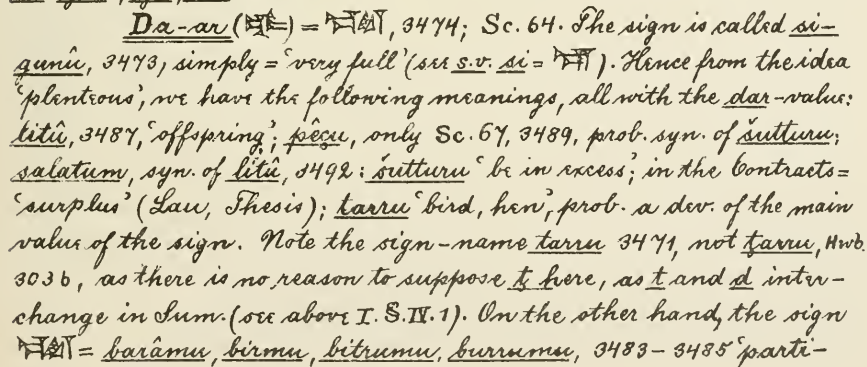 Da-ar (𒁯) = 𒁯, 3474; Sc. 64. The sign is called si-
gunû, 3473, simply = 'very full' (see s.v. si = 𒋛). Hence from the idea
'plenteous', we have the following meanings, all with the dar-value:
litû, 3487, 'offspring'; pêçu, only Sc. 67, 3489, prob. syn. of šutturu;
salatum, syn. of litû, 3492: šutturu 'be in excess'; in the Contracts=
'surplus' (Lau, Thesis); tarru 'bird, hen', prob. a dev. of the main
value of the sign. Note the sign-name tarru 3471, not ṭarru, Hwb.
303b, as there is no reason to suppose ṭ here, as t and d inter-
change in Sum. (see above I. S. IV. 1). On the other hand, the sign
𒁯 = barâmu, birmu, bitrumu, burrumu, 3483-3485 'parti-